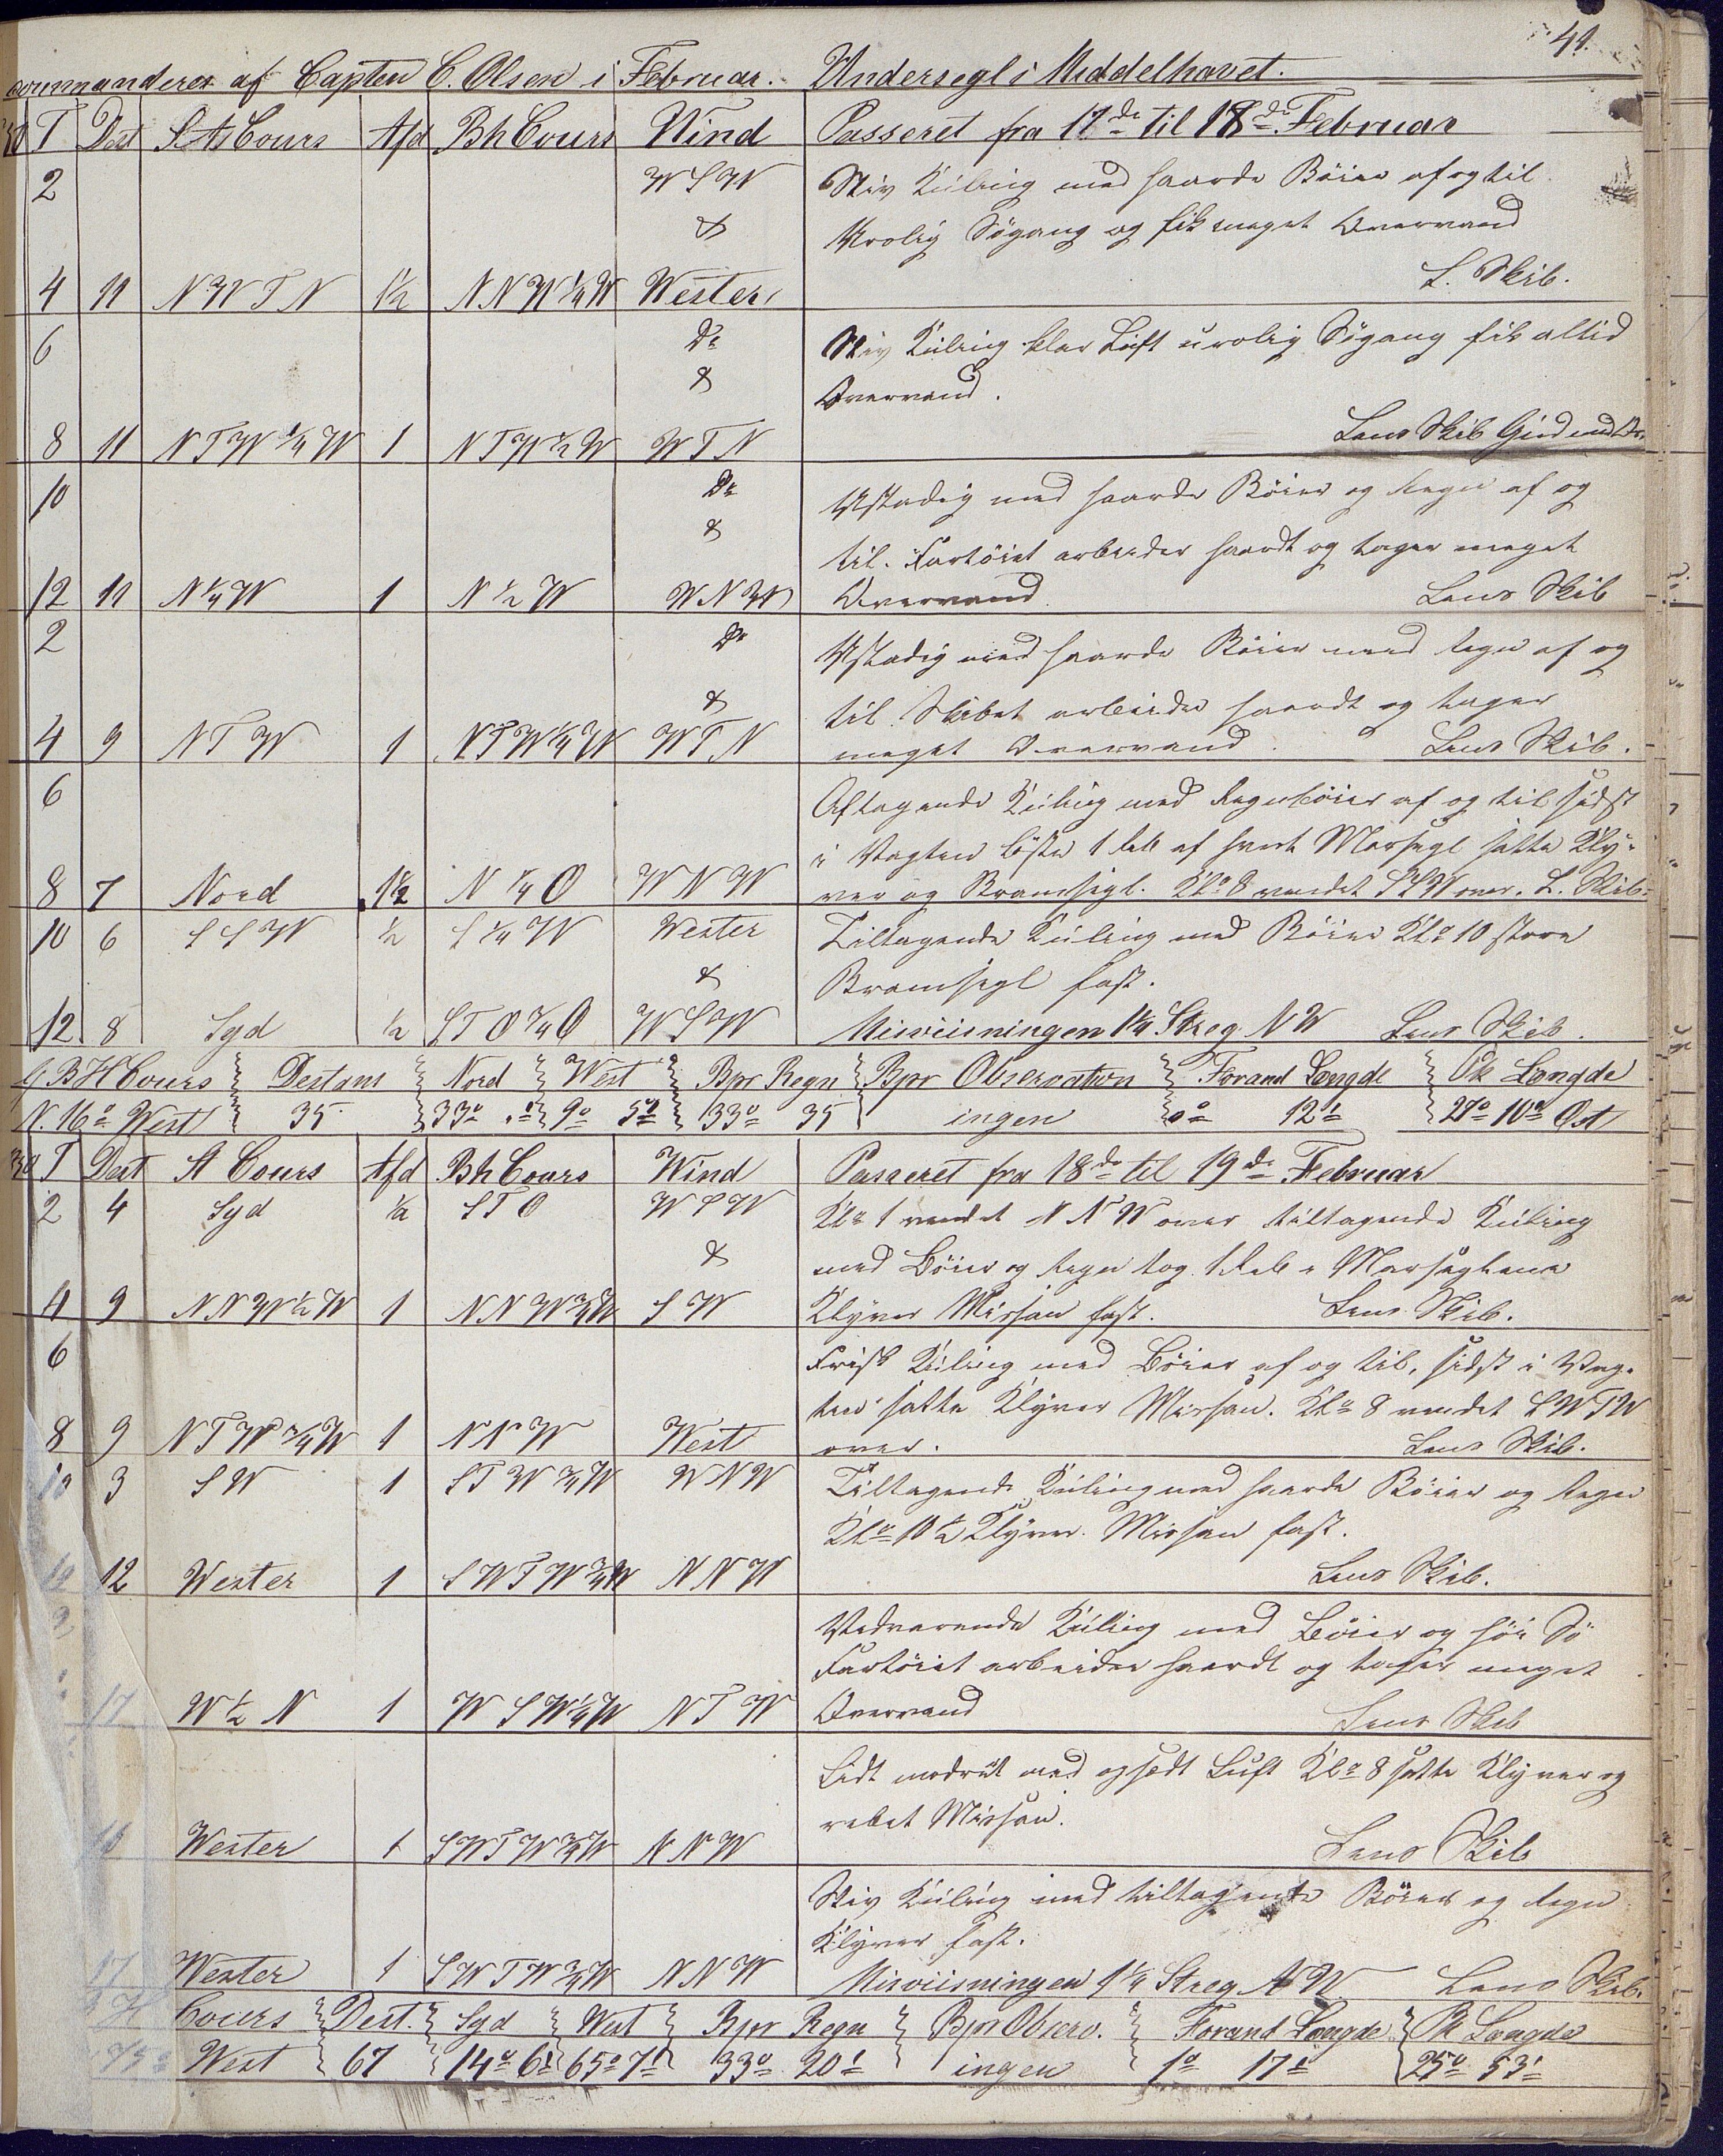 41.
commanderes af Capten C. Olsen i Februar. Undersegl i Middelhavet.
T Dest St Cours Afd Bh Cours Wind Passeret fra 17de til 18de Februar
2 W S W Stiv Kuling med haarde Böier af og til
& Urolig Söegang og fik meget Overvand
4 11 N W T N 1/2 N N W 1/4 W Wester L. Skib.
6 Do Stiv Kuling klar Luft urolig Sögang fik altid
& Overvand.
8 11 N T W 1/4 W 1 N T W 1/2 W W T N Lens Skib
10 Do Ustadig med haarde Böier og Regn af og
& til. Fartöiet arbeider haardt og tager meget
12 11 N 1/4 W 1 N 1/2 W W N W Overvand. Lens Skib
2 Do Ustadig med haarde Böier med Regn af og
& til Skibet arbeider haardt og tager
4 9 N T W 1 N T W 1/4 W W T N meget Overvand. Lens Skib.
6 Aftagende Kuling med Regnböier af og til sidst
i Vagten löste 1 Reb af hvert Mersegl satte Kly-
8 7 Nord 1 1/2 N 1/4 O W N W ver og Bramsegl. Klo 8 vendet S S W over. L. Skib.
10 6 S S W 1/2 S 1/4 W Wester Tiltagende Kuling med Böier Klo 10 store
& Bramsegl fast.
12 8 Syd 1/2 S T O 1/4 O W S W Misviisningen 1 1/4 Streg N W Lens Skib.
G BH Cours Destans Nord West Bpr Regn Bpr Observation Forand Længde Pk Længde
N. 16° West 35 33° 9° 5' 33° 35 ingen 0° 12' 27° 10' Ost
T Dest St Cours Afd Bh Cours Wind Passeret fra 18de til 19de Februar
2 4 Syd 1/2 S T O W S W Klo 1 vendet N N W over tiltagende Kuling
& med Böier og Regn tog 1 Reb i Mersseglene
4 9 N N W 1/2 W 1 N N W 3/4 W S W Klyver Missan fast. Lens Skib.
6 Frisk Kuling med Böier af og til, sidst i Vag-
8 9 N T W 3/4 W 1 N N W West ten satte Klyver Missan. Klo 8 vendet S W T W
over. Lens Skib.
10 3 S W 1 S T W 3/4 W W N W Tiltagende Kuling med haarde Böier og Regn
Klo 10 1/2 Klyver. Missan fast.
12 12 Wester 1 S W T W 3/4 W N N W Lens Skib.
2 Vedvarende Kuling med Böier og höi Sö
Fartöiet arbeider haardt og tager meget
17 W 1/2 N 1 W S W 1/4 W N T W Overvand Lens Skib
Lidt med Luft Klo 8 satte Klyver og
rebet Missan.
16 Wester 1 S W T W 3/4 W N N W Lens Skib
Stiv Kuling med tiltagende Böier og Regn
Klyver fast.
17 Wester 1 S W T W 3/4 W N N W Misviisningen 1 1/4 Streg N W. Lens Skib.
H Cours Dest. Syd West Bpr Regn Bpr Observ. Forand Længde Pk Længde
75° West 67 14° 6' 65° 7' 33° 20' ingen 1° 17' 25° 53'